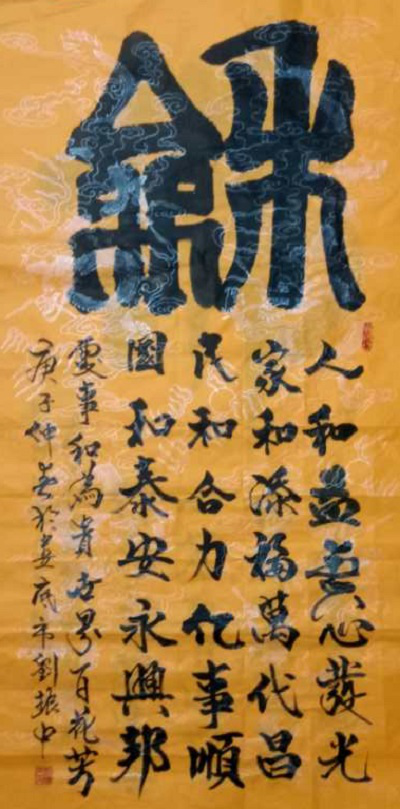 龢
人和益壽心發光
家和添福萬代昌
民和合力亿事順
國和泰安永興邦
處事和為貴世界百花芳
庚子仲於婁底市劉振中